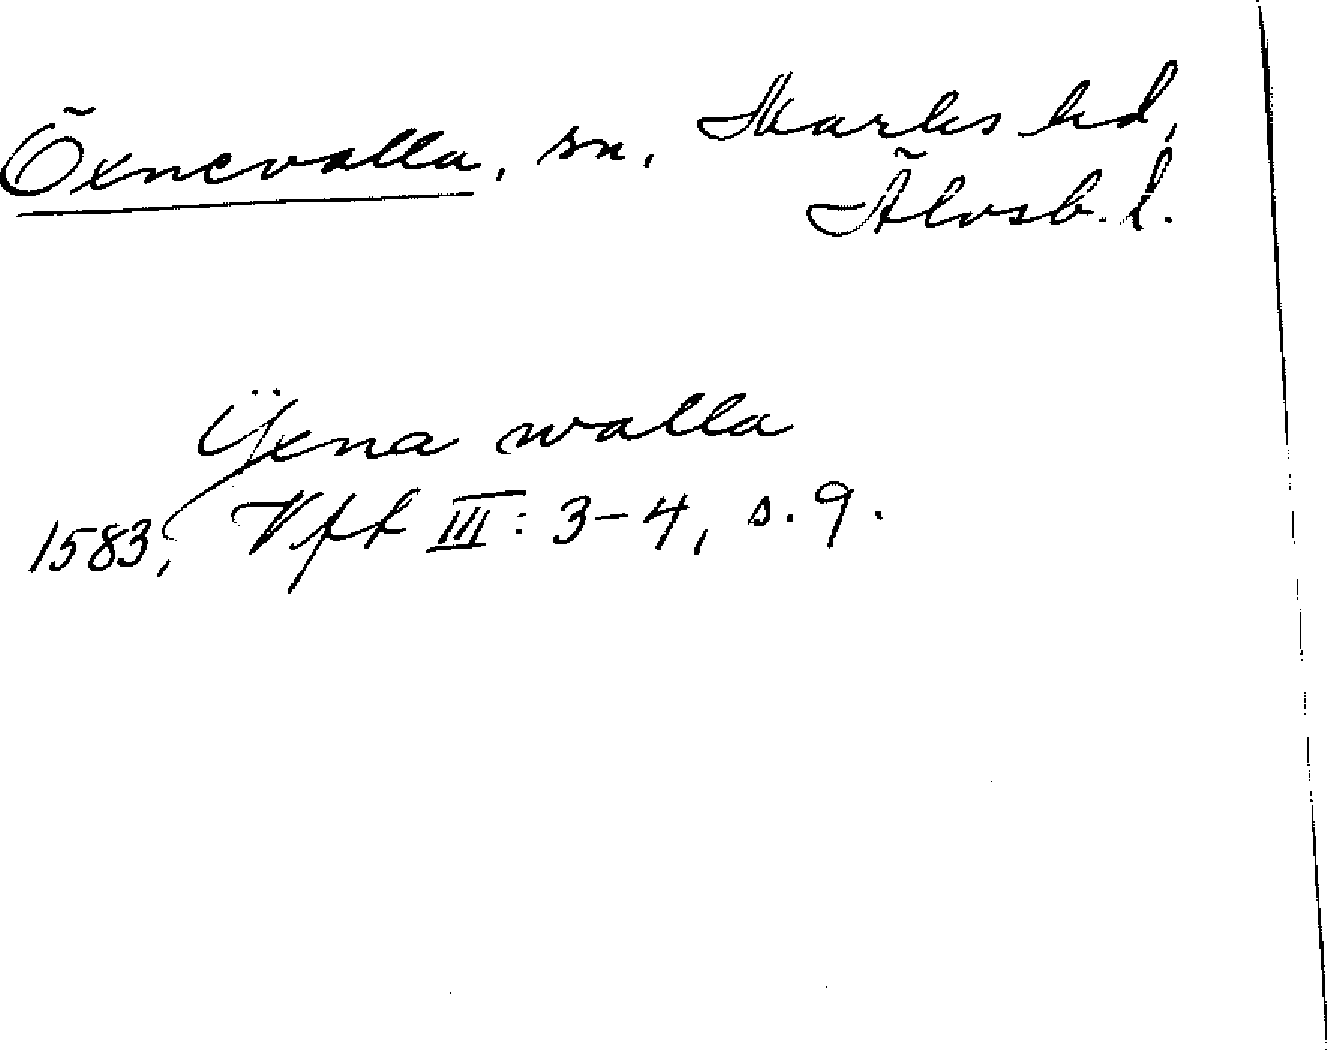 Öxnevalla, sn. Marks hd,
Älvsb. l.
Ÿxna walla
1583, Vft III: 3-4, s. 9.